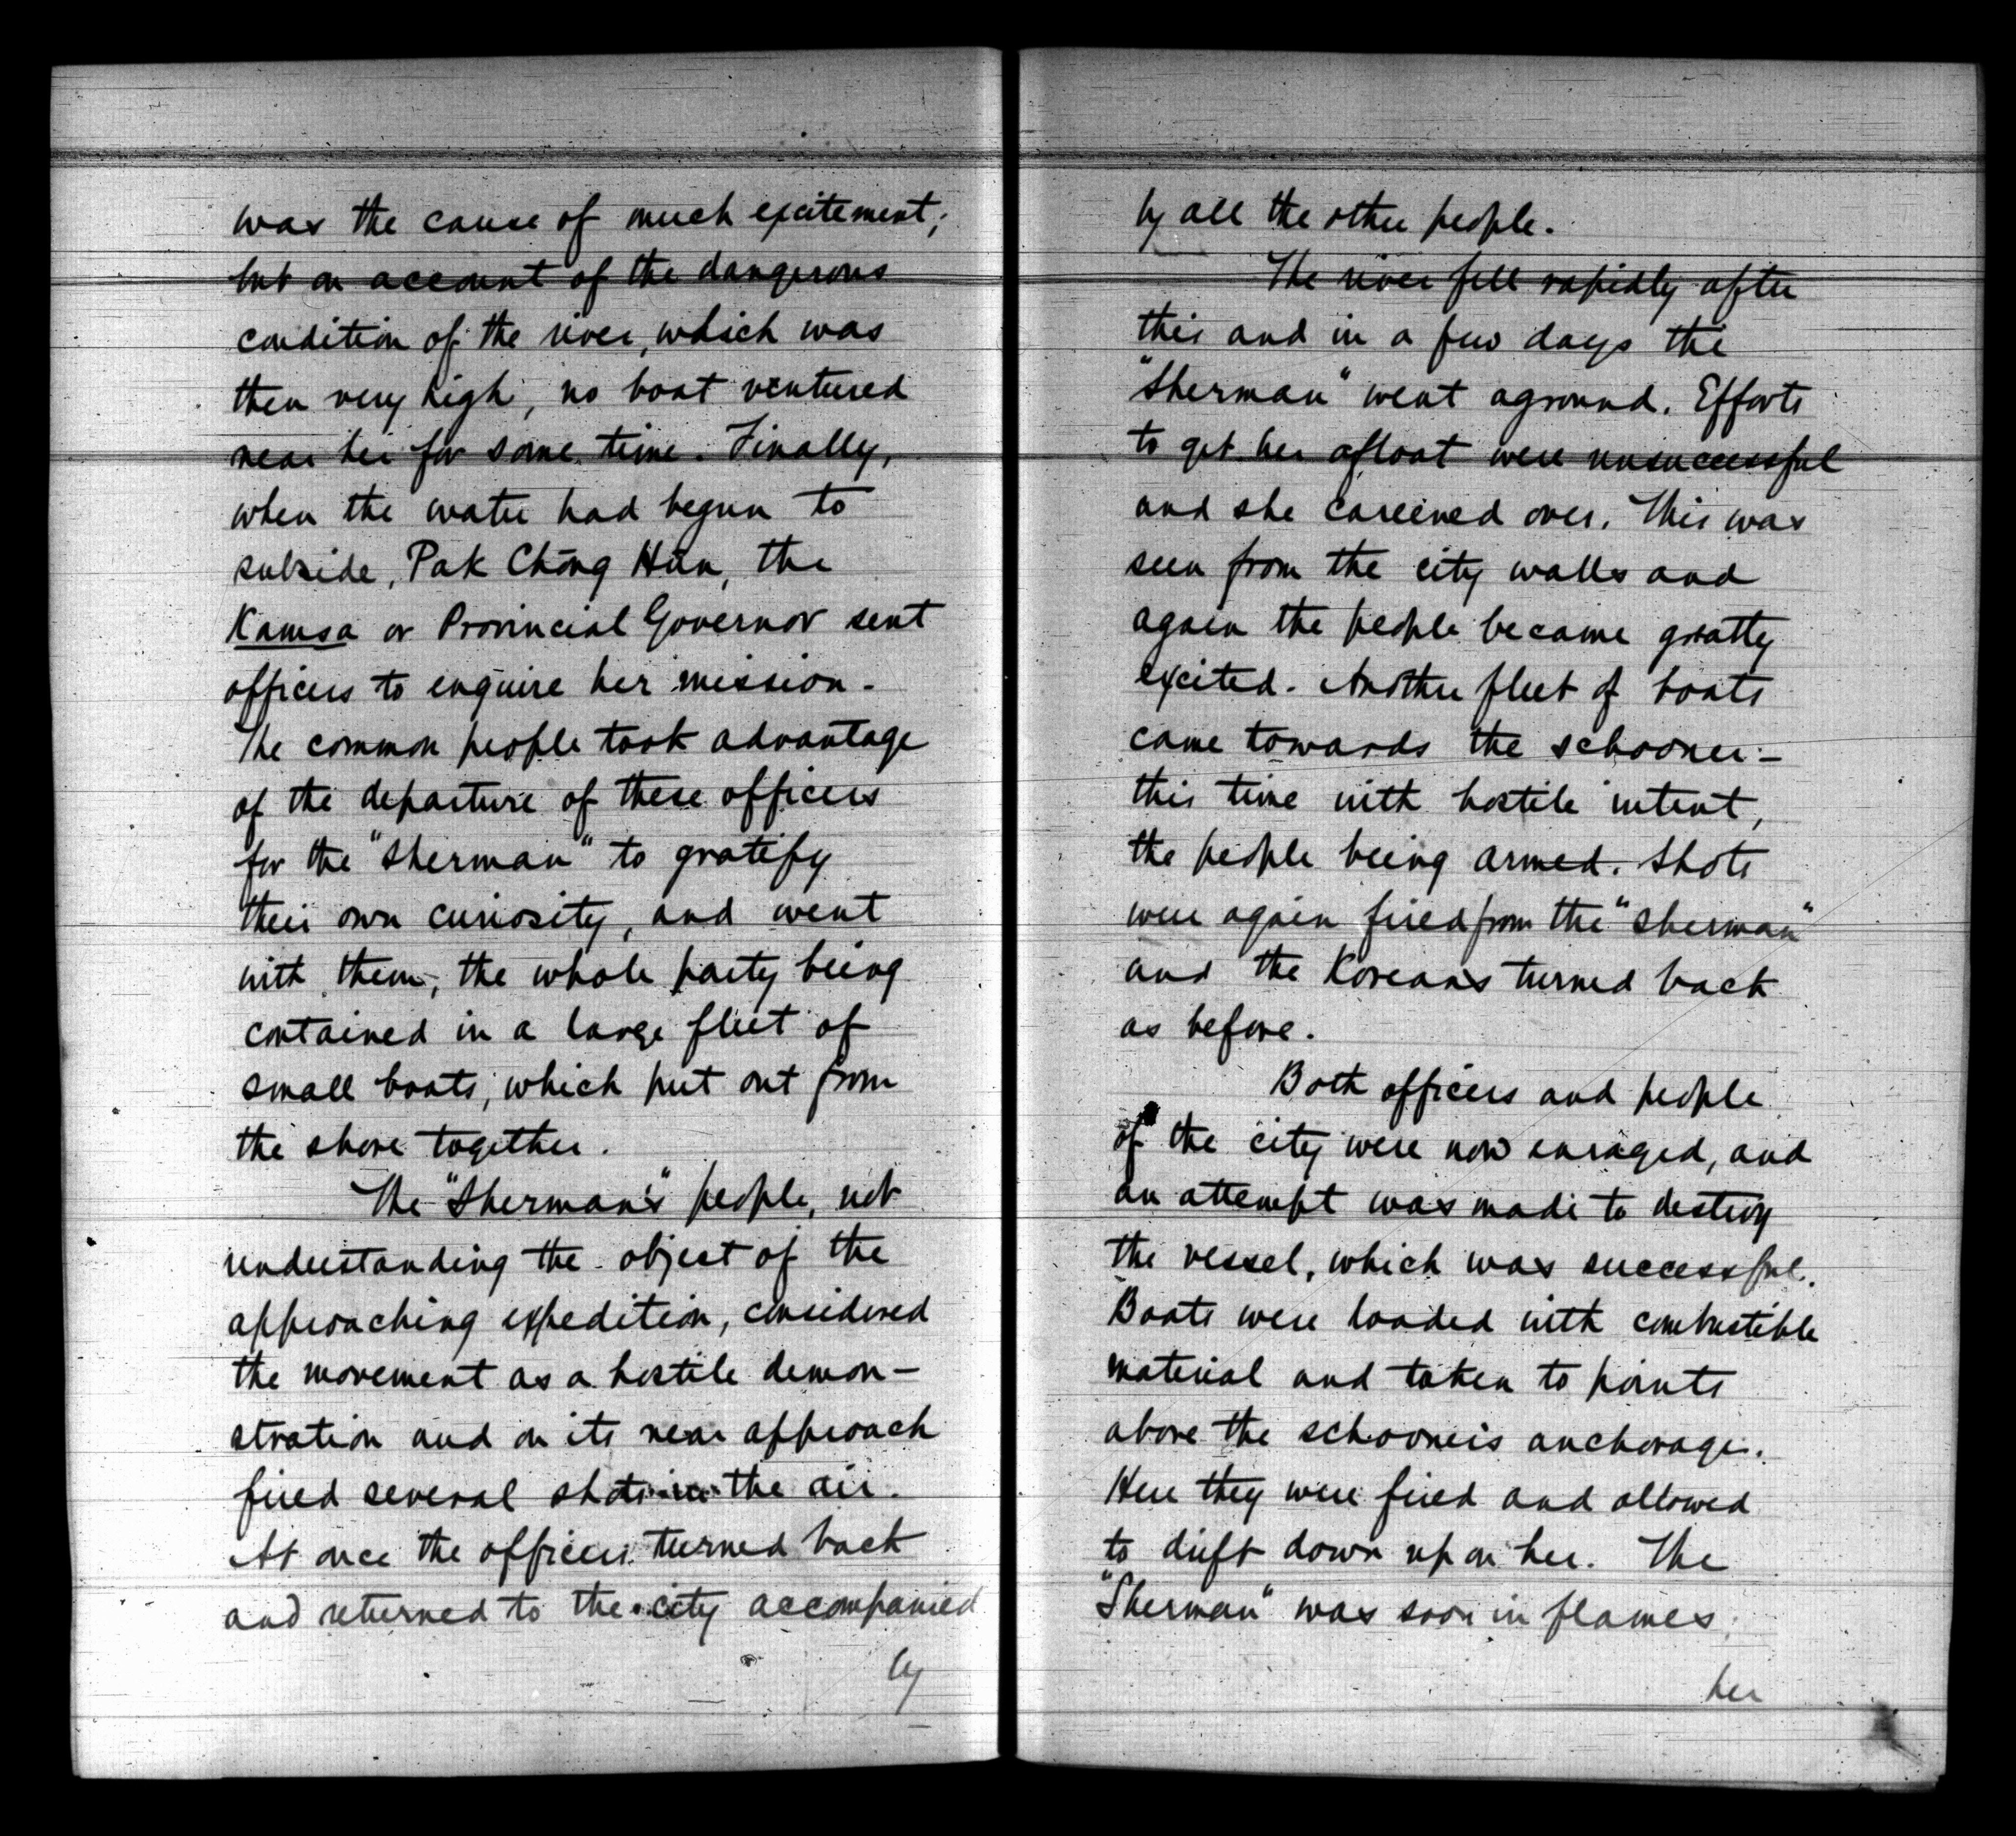 was the cause of much excitement;
but on account of the dangerous
condition of the river, which was
then very high, no boat ventured
near her for some time. Finally,
when the water had begun to
subside, Pak Chöng Hün, the
Kamsa or Provincial Governor sent
officers to enquire her mission.
The common people took advantage
of the departure of these officers
for the "Sherman" to gratify
their own curiosity, and went
with them, the whole party being
contained in a large fleet of
small boats, which put out from
the shore together.
The "Sherman's" people, not
understanding the object of the
approaching expedition, considered
the movement as a hostile demon-
stration and on its near approach
fired several shots in the air.
At once the officers turned back
and returned to the city accompanied
by
by all the other people.
The river fell rapidly after
this and in a few days the
"Sherman" went aground. Efforts
to get her afloat were unsuccessful
and she careened over. This was
seen from the city walls and
again the people became greatly
excited. Another fleet of boats
came towards the schooner—
this time with hostile intent,
the people being armed. Shots
were again fired from the "Sherman"
and the Koreans turned back
as before.
Both officers and people
of the city were now enraged, and
an attempt was made to destroy
the vessel, which was successful.
Boats were loaded with combustible
material and taken to points
above the schooner's anchorage.
Here they were fired and allowed
to drift down upon her. The
"Sherman" was soon in flames;
her